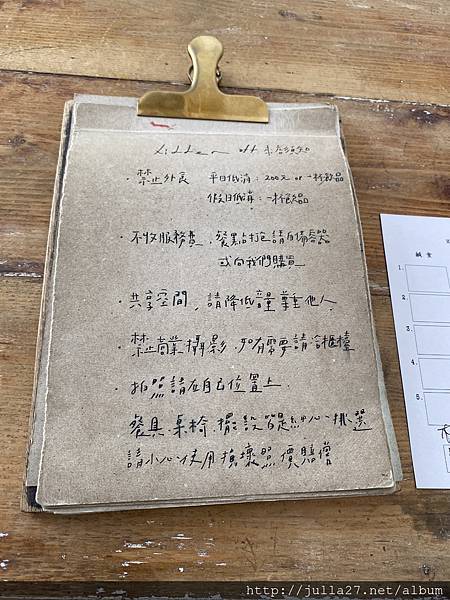 off 來店須知
·禁止外食 平日低消:200元 or 一杯飲品
假日低消:一杯飲品
·不收服務費,餐點打包請自備容器
或向我們購買
·共享空間,請降低音量尊重他人.
·禁止商業攝影,如有需要請洽櫃檯
·拍照請在自己位置上.
餐具.桌椅.擺設皆是細心挑選
請小心使用損壞照價賠償
鹹食
1.
2.
3.
4.
5.
http://julla27.net/album